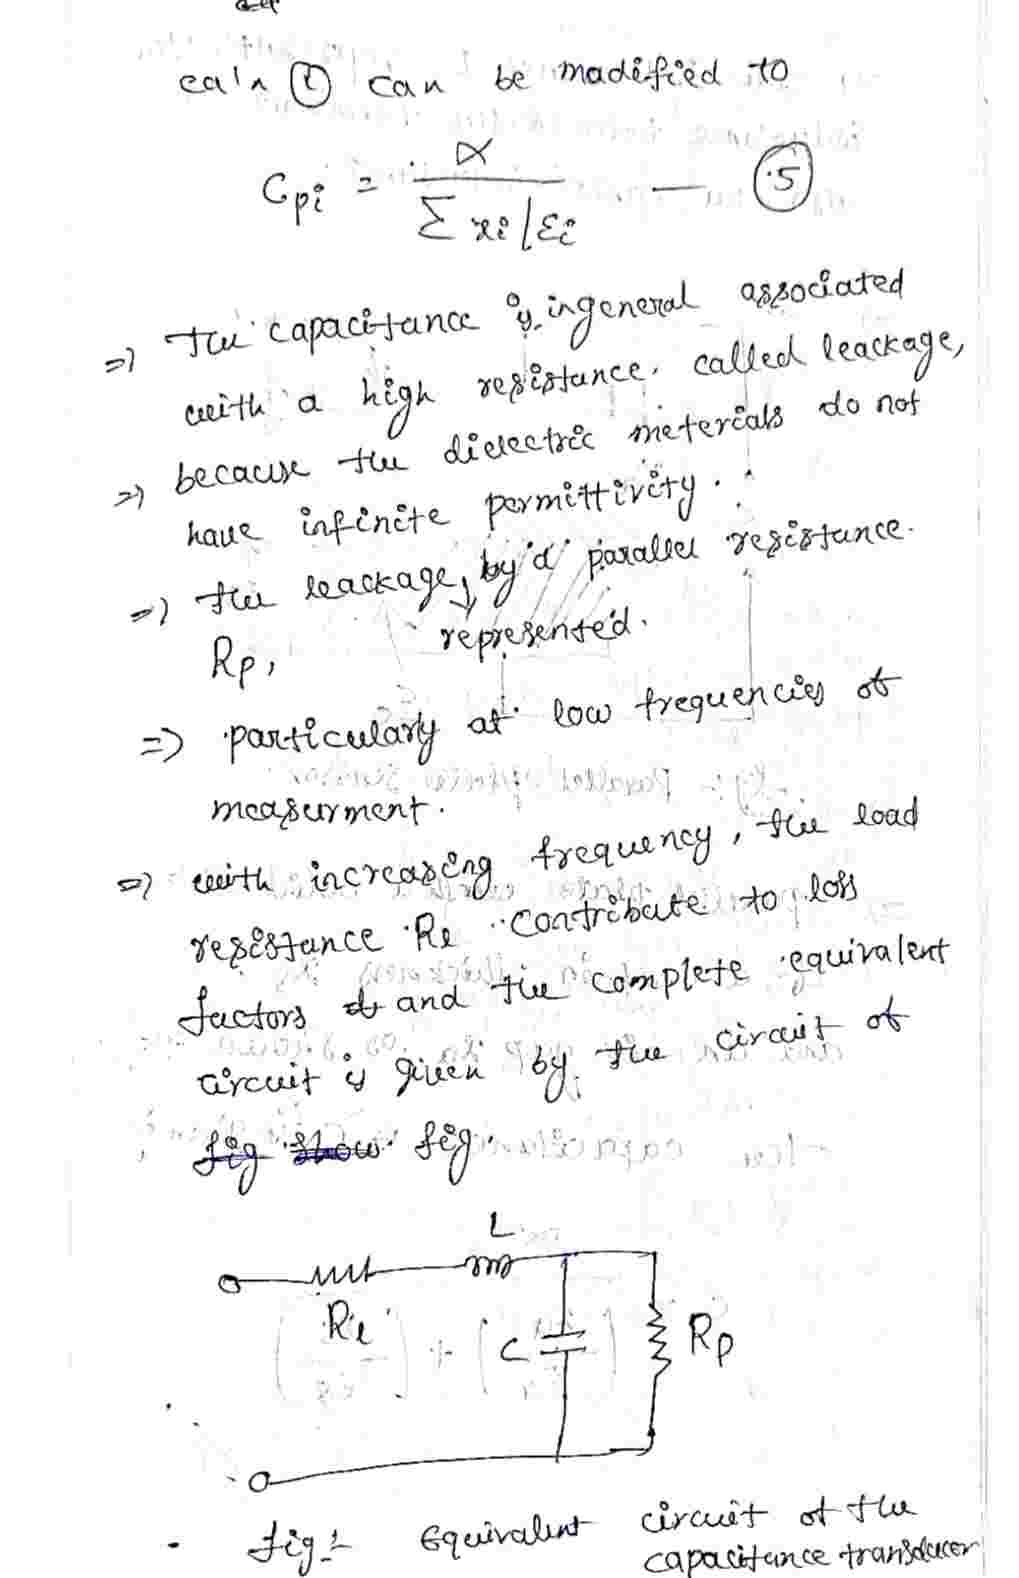 eq'n ① can be madified to
Cpi = α / Σ xi/εi — ⑤
=) the capacitance is ingeneral associated
with a high resistance. called leackage,
=) because the dielectric meterials do not
have infinite permittivity.
=) the leackage, by 'a' parallel resistance.
Rp, represented.
=) particularly at low frequencies of
measurment.
=) with increasing frequency, the load
resistance Rl contribute to loss
factors and the complete equivalent
circuit is given by the circuit of
fig show fig.
L
Rl
C
Rp
fig:- Equivalent circuit of the
capacitance transducer